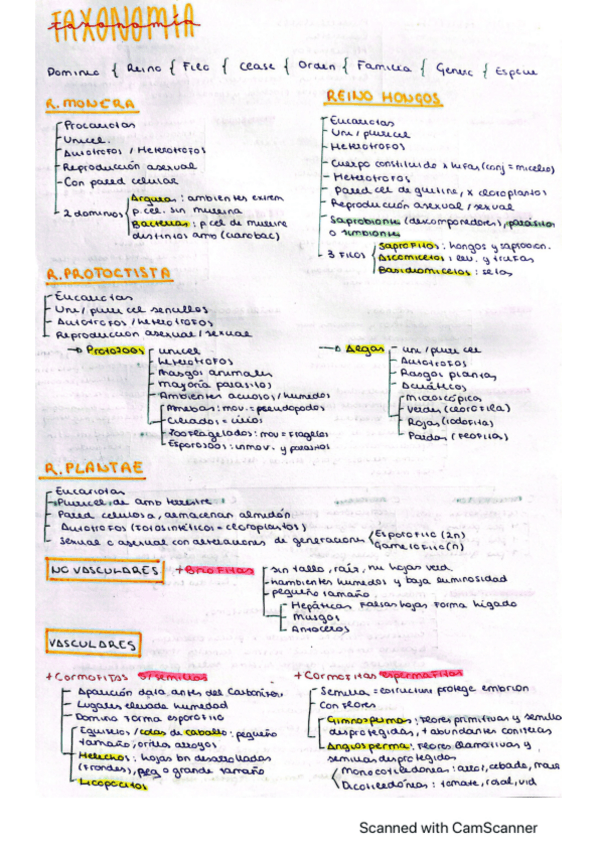 TAXONOMÍA
Dominio { Reino { Filo { Clase { Orden { Familia { Género { Especie
R. MONERA
Procariotas
Unicel.
Autótrofos / Heterótrofos
Reproducción asexual
Con pared celular
2 dominios
Arqueas: ambientes extrem
p. cel. sin mureína
Bacterias: p cel de mureína
distintos amb (cianobac)
REINO HONGOS
Eucariotas
Uni / pluricel
Heterótrofos
Cuerpo constituido x hifas (conj = micelio)
Heterótrofos
Pared cel de quitina, x cloroplastos
Reproducción asexual / sexual
Saprobiontes (descomponedores), parásitos
o simbiontes
3 Filos
Saprofitos: hongos y
Ascomicetos: lev. y trufas
Basidiomicetos: setas
R. PROTOCTISTA
Eucariotas
Uni / pluri cel sencillos
Autótrofos / heterótrofos
Reproducción asexual / sexual
Protozoos
unicel
heterótrofos
Rasgos animales
mayoría parásitos
Ambientes acuosos / húmedos
Amebas: mov. = pseudópodos
Ciliados = cilios
Zooflagelados: mov = flagelos
Esporozoos: inmov. y parásitos
Algas
uni / pluri cel
Autótrofos
Rasgos plantas
Acuáticos
Microscópica
Verdes (clorofila)
Rojas (rodofita)
Pardas (feofila)
R. PLANTAE
Eucariotas
Pluricel de amb terrestre
Pared celulosa, almacenan almidón
Autótrofos (fotosintéticos = cloroplastos)
Sexual o asexual con alteraciones de generaciones
Esporofito (2n)
Gametofito (n)
NO VASCULARES
+ Briofitas
sin tallo, raíz, ni hojas verd.
hambientes húmedos y baja luminosidad
pequeño tamaño
Hepáticas Falsas hojas forma hígado
Musgos
Antoceros
VASCULARES
+ Cormofitos s/semillas
Aparición data antes del Carbonífero
Lugares elevada humedad
Domino forma esporofito
Equisetos / colas de caballo: pequeño
tamaño, orilla arroyos
Helechos: hojas bn desarrolladas
(frondes), peq o grande tamaño
Licopocitos
+ Cormofitas espermafitas
Semilla = estructura protege embrión
Con flores
Gimnosperma: flores primitivas y semilla
desprotegidas, + abundantes coníferas
Angiosperma: flores llamativas y
semillas desprotegidos
Monocotiledóneas: arroz, cebada, maíz
Dicotiledóneas: tomate, rosal, vid
Scanned with CamScanner